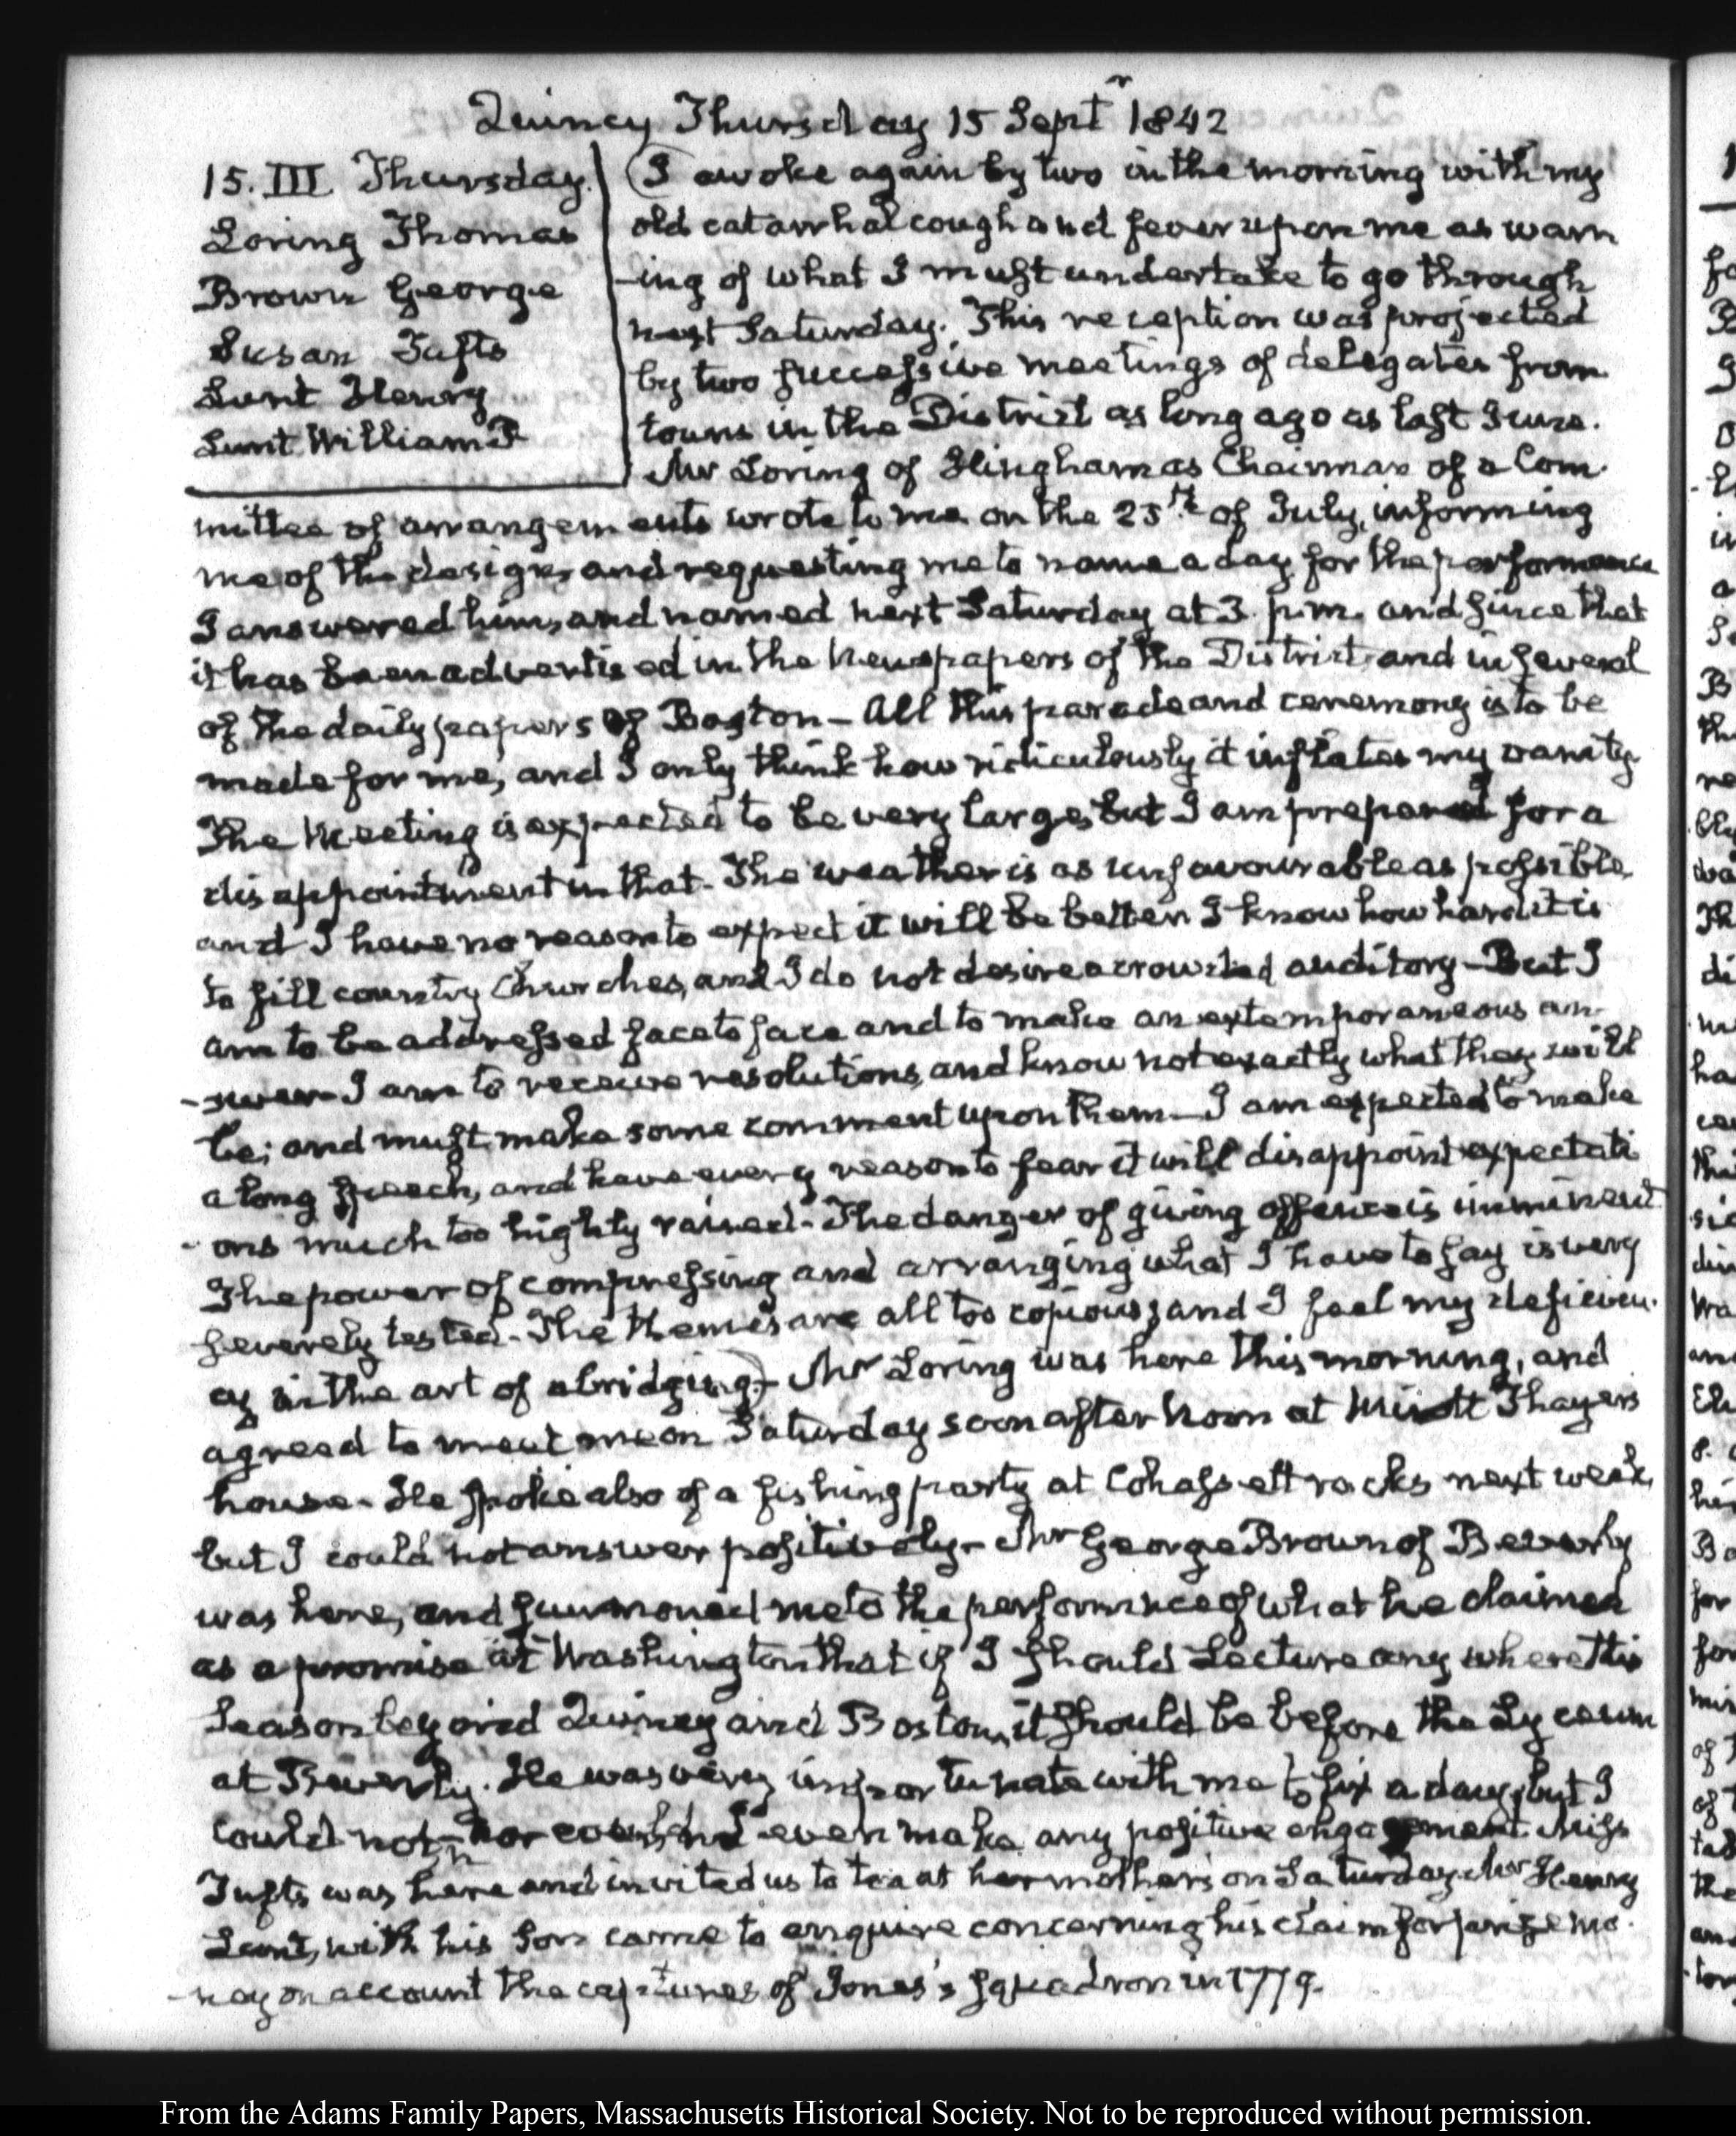 Quincy Thursday 15 Septr 1842
15. III. Thursday.
Loring Thomas
Brown George
Susan Tufts
Lunt Henry
Lunt William P
(I awoke again by two in the morning with my
old catarrhal cough and fever upon me as warn
-ing of what I must undertake to go through
next Saturday. This reception was projected
by two successive meetings of delegates from
towns in the District as long ago as last June.
Mr Loring of Hingham as Chairman of a Com-
mittee of arrangements wrote to me on the 25th of July, informing
me of the design, and requesting me to name a day for the performance
I answered him, and named next Saturday at 3. p.m. and since that
it has been advertised in the Newspapers of the District, and in several
of the daily papers of Boston — All this parade and ceremony is to be
made for me, and I only think how ridiculously it inflates my vanity.
The Meeting is expected to be very large, but I am prepared for a
disappointment in that. The weather is as unfavourable as possible,
and I have no reason to expect it will be better. I know how hard it is
to fill country Churches, and I do not desire a crowded auditory — But I
am to be addressed face to face and to make an extemporaneous an-
-swer — I am to receive resolutions, and know not exactly what they will
be; and must make some comment upon them — I am expected to make
a long speech, and have every reason to fear it will disappoint expectati
-ons much too highly raised — The danger of giving offence is imminent
The power of compressing and arranging what I have to say is very
severely tested — The themes are all too copious, and I feel my deficien-
cy in the art of abridging) — Mr Loring was here this morning, and
agreed to meet me on Saturday soon after Noon at Minott Thayer's
house — He spoke also of a fishing party at Cohassett rocks next week,
but I could not answer positively — Mr George Brown of Beverly
was here, and summoned me to the performance of what he claimed
as a promise at Washington that if I should Lecture any where this
Season beyond Quincy and Boston, it should be before the Lyceum
at Beverly. He was very importunate with me to fix a day, but I
could not, nor could I even make any positive engagement. Miss
Tufts was here and invited us to tea at her mother's on Saturday. Mr Henry
Lunt, with his Son came to enquire concerning his claim for prize mo-
-ney on account the captures of Jones's squadron in 1779.
From the Adams Family Papers, Massachusetts Historical Society. Not to be reproduced without permission.